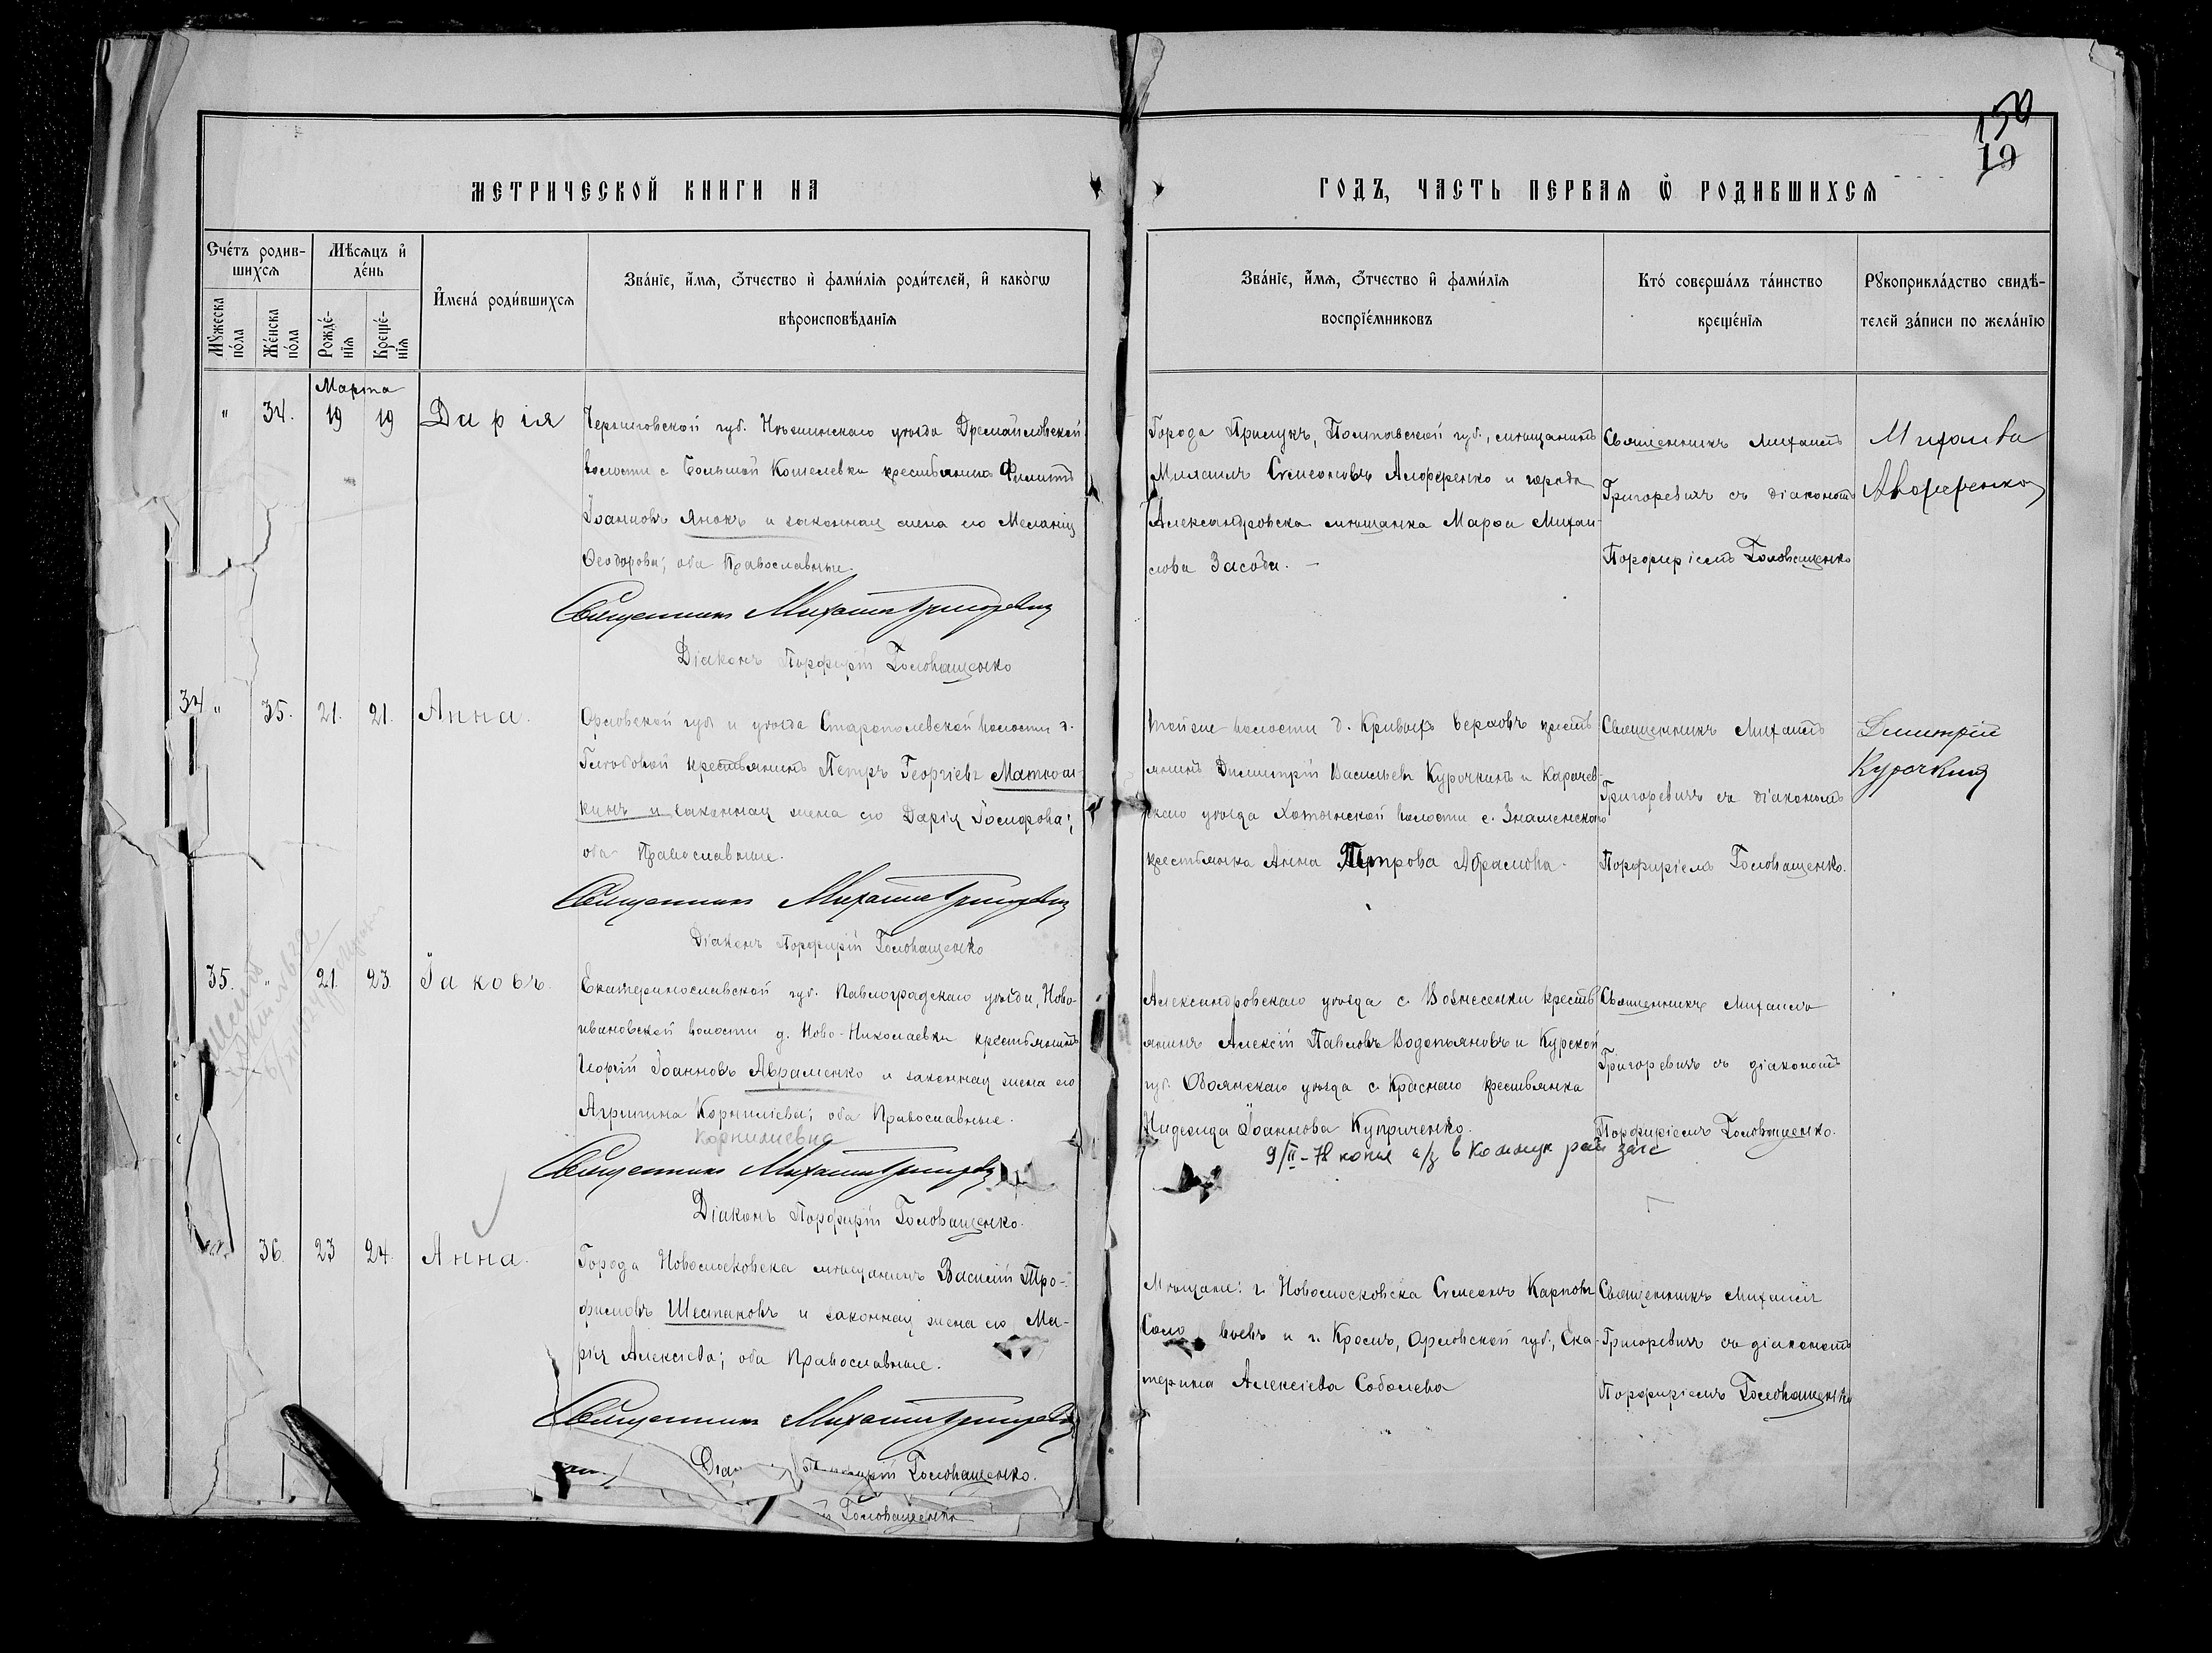 150
19
МЕТРИЧЕСКОЙ КНИГИ НА
ГОДЪ, ЧАСТЬ ПЕРВАЯ Ѡ РОДИВШИХСЯ
Счетъ родив-
шихся
Мужеска
пола
Женска
пола
Мѣсяцъ и
день
Рожде-
нія
Креще-
нія
Имена родившихся
Званіе, имя, отчество и фамилія родителей, и какогѡ
вѣроисповѣданія
Званіе, имя, отчество и фамилія
воспріемниковъ
Кто совершалъ таинство
крещенія
Рукоприкладство свидѣ-
телей записи по желанію
Марта
" 34. 19 19 Дарія
Черниговской губ. Нѣжинскаго уѣзда Дремайловской
волости с Большой Кошелевки крестьянинъ Филиппъ
Іоанновъ Янокъ и законная жена его Меланія
Ѳеодорова; оба Православные.
Священникъ Михаилъ Григоревичъ
Діаконъ Порфирій Головащенко
Города Прилукъ, Полтавской губ., мѣщанинъ
Семеоновъ Алоференко и города
Александровска мѣщанка Марѳа Михаи-
лова Засоди. –
Священникъ Михаилъ
Григоревичъ съ діакономъ
Порфиріемъ Головащенко
34 " 35. 21. 21. Анна.
Орловской губ и уѣзда волости д.
крестьянинъ Петръ Георгіевъ
кинъ и законная жена его Дарія
оба Православные.
Священникъ Михаилъ Григоревичъ
Діаконъ Порфирій Головащенко
Тойже волости д. Кривыхъ Верховъ кресть-
янинъ Димитрій Васильевъ Курочкинъ и Карачев-
скаго уѣзда Хотынской волости с. Знаменскаго
крестьянка Анна Петрова Абрамова.
Священникъ Михаилъ
Григоревичъ съ діакономъ
Порфиріемъ Головащенко.
Димитрій
Курочкинъ
35. " 21. 23. Іаковъ.
Екатеринославской губ. Павлоградскаго уѣзда, Ново-
ивановской волости д. Ново-Николаевки крестьянинъ
Георгій Іоанновъ Авраменко и законная жена его
Агрипина Корнилiева; оба Православные.
Корнилиевна
Священникъ Михаилъ Григоревичъ
Діаконъ Порфирій Головащенко.
Александровскаго уѣзда с. Вознесенки кресть-
янинъ Алексій Павловъ Водопьяновъ и Курской
губ. Обоянскаго уѣзда с. Краснаго крестьянка
Надежда Іоаннова Куприченко.
9/II-78 копия а/з в Коммун рай загс
Священникъ Михаилъ
Григоревичъ съ діакономъ
Порфиріемъ Головащенко.
36. 23 24. Анна.
Города Новомосковска мѣщанинъ Василій Тро-
фимовъ Шестаковъ и законная жена его Ма-
рія Алексіева; оба Православные.
Священникъ Михаилъ Григоревичъ
Головащенко.
й Головащенко
Мѣщане: г. Новомосковска Семеонъ Карповъ
Соло вьевъ и г. Кромъ, Орловской губ., Ека-
терина Алексіева Соболева
Священникъ Михаилъ
Григоревичъ съ діакономъ
Порфиріемъ Головащенко